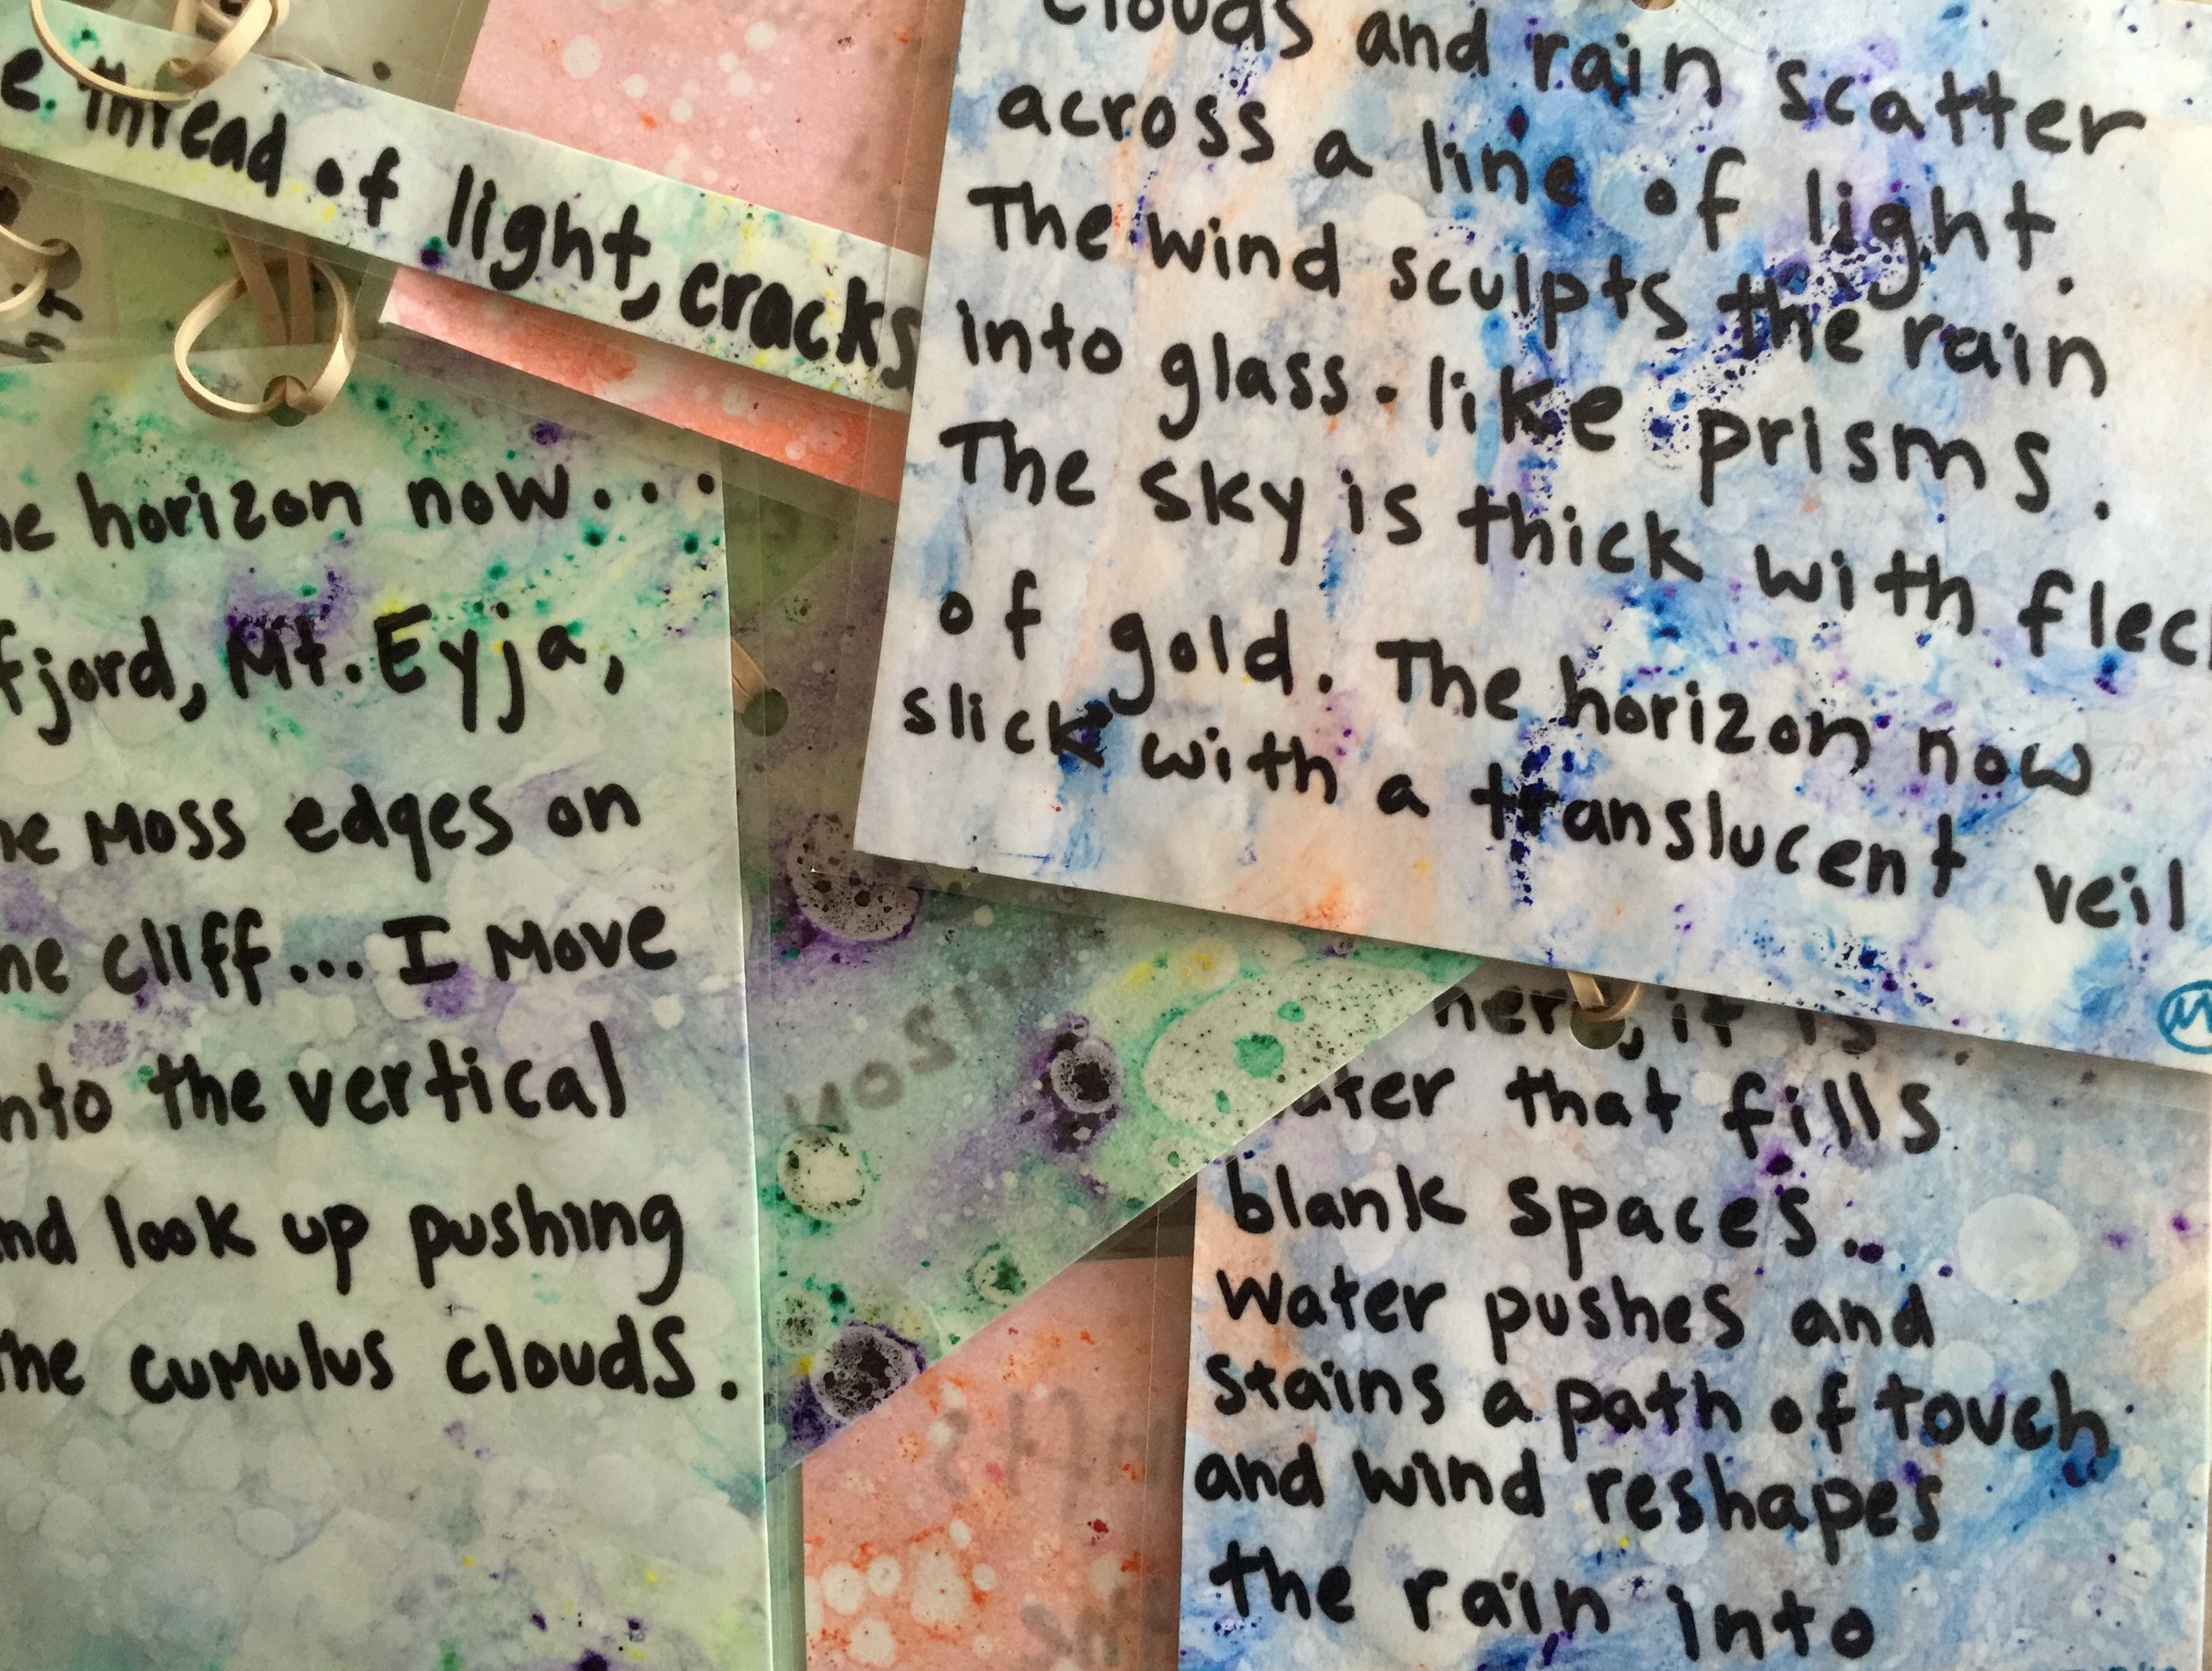 thread of light, cracks
clouds and rain scatter
across a line of light.
The wind sculpts the rain
into glass. like prisms.
The sky is thick with flec
of gold. The horizon now
slick with a translucent veil
horizon now...
fjord, Mt. Eyja,
Moss edges on
cliff... I Move
the vertical
look up pushing
cumulus clouds.
it is
that fills
blank spaces...
water pushes and
stains a path of touch
and wind reshapes
the rain into